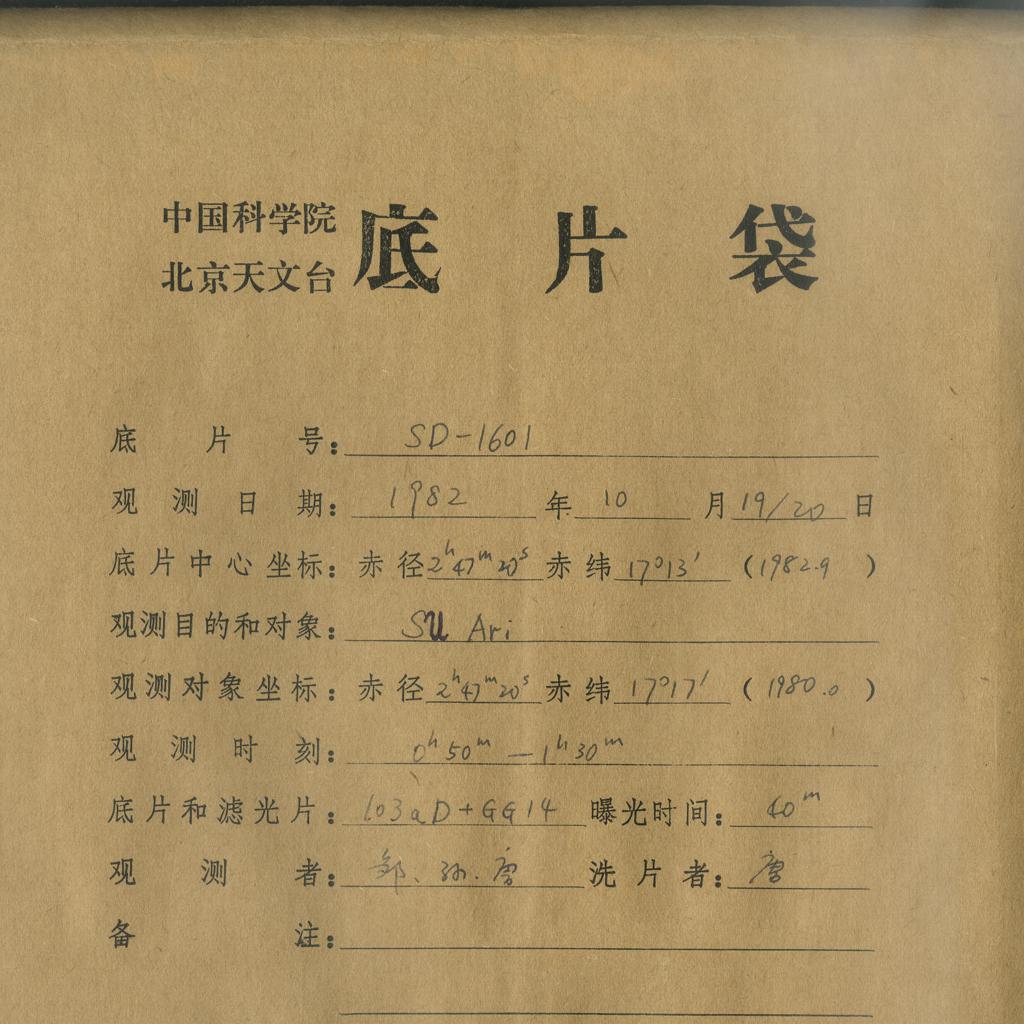 中国科学院
北京天文台
底片袋
底片号：SD-1601
观测日期：1982年10月19/20日
底片中心坐标：赤径2h47m20s赤纬17°13′（1982.9）
观测目的和对象：SU Ari
观测对象坐标：赤径2h47m20s赤纬17°17′（1980.0）
观测时刻：0h50m—1h30m
底片和滤光片：103aD+GG14 曝光时间：40m
观测者：邹、孙、唐 洗片者：唐
备注：